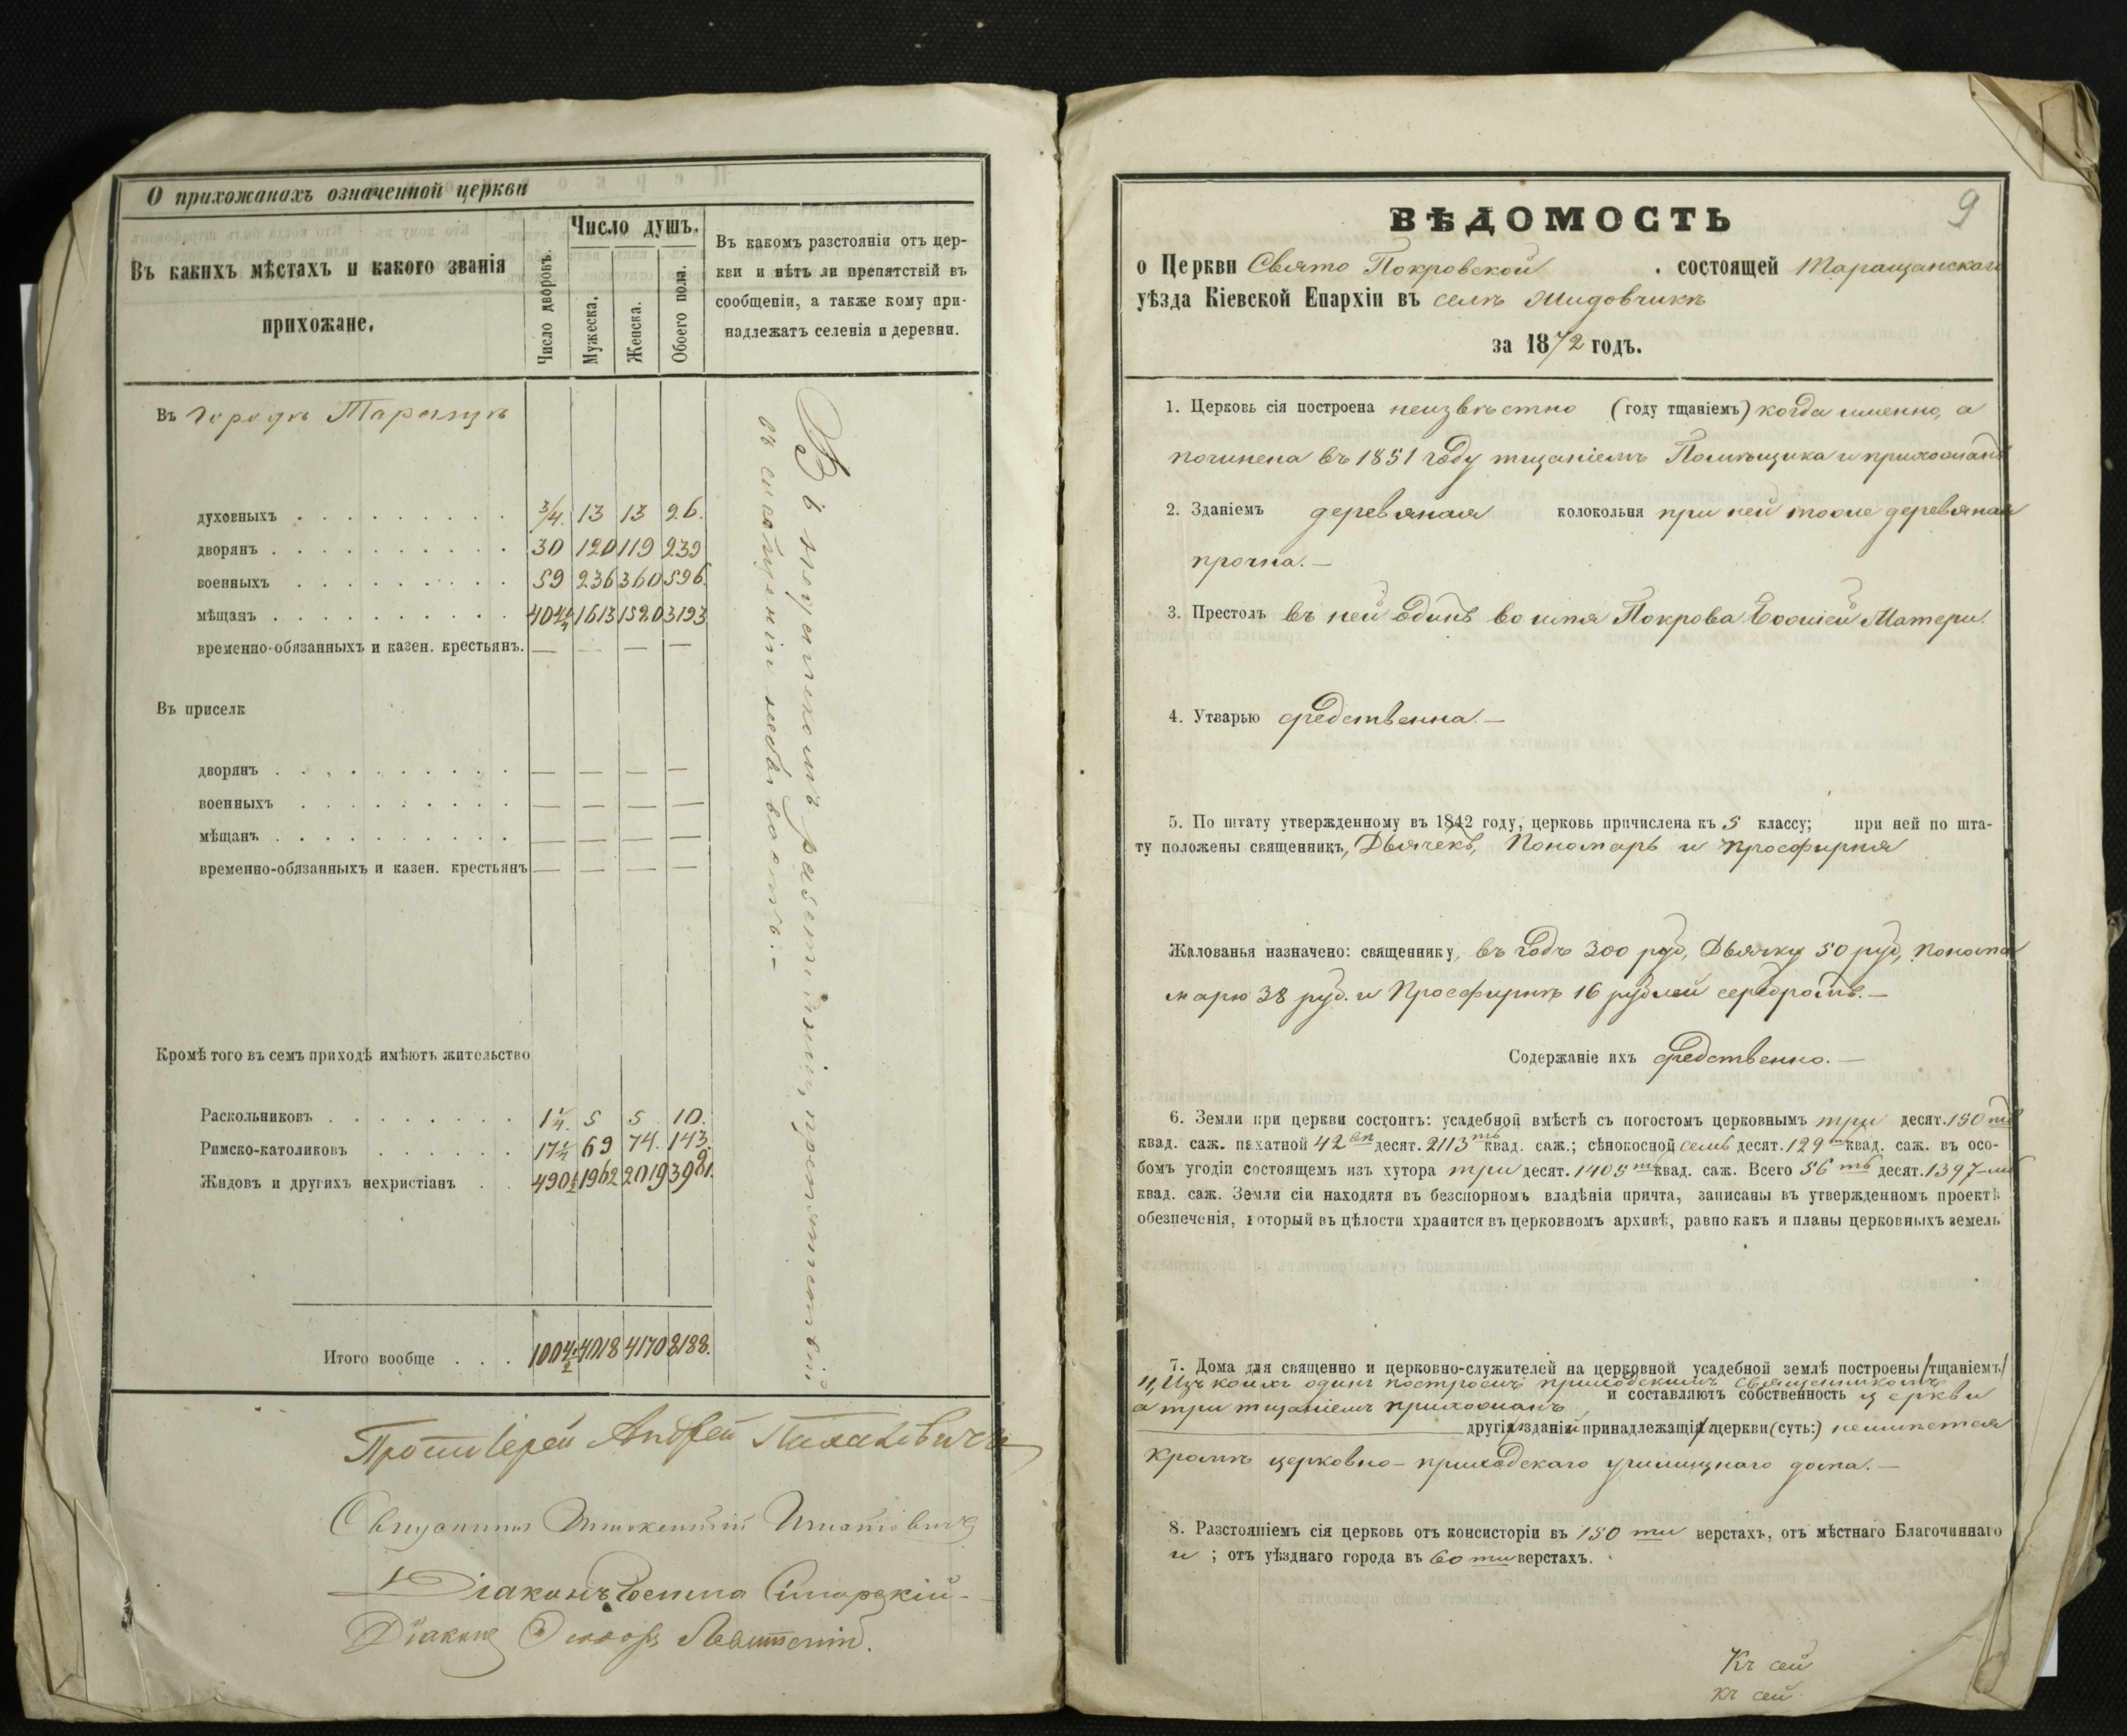 О прихожанахъ означенной церкви
Въ какихъ мѣстахъ и какого званія
прихожане.
Число дворовъ.
Число душъ.
Мужеска.
Женска.
Обоего пола.
Въ какомъ разстояніи отъ цер-
кви и нѣтъ ли препятствій въ
сообщеніи, а также кому при-
надлежатъ селенія и деревни.
Въ городѣ Таращѣ
духовныхъ 3/4. 13 13 26.
дворянъ 30 120 119 239
военныхъ 59 236 360 596.
мѣщанъ 404 1613 1580 3193
временно-обязанныхъ и казен. крестьянъ. — — — —
Въ приселк
дворянъ — — — —
военныхъ — — — —
мѣщанъ — — — —
временно-обязанныхъ и казен. крестьянъ — — — —
Кромѣ того въ семъ приходѣ имѣютъ жительство
Раскольниковъ 1 1/4. 5 5 10.
Римско-католиковъ 17 69 74. 143.
Жидовъ и другихъ нехристіанъ 490 1962 2019 3981.
Итого вообще 1004 4018 4170 8188.
разстояніи, препятствій
въ сообщеніи
Протоіерей Андрей
Священникъ Иннокентій Игнатовичъ
Діаконъ
Діаконъ
9
ВѢДОМОСТЬ
о Церкви Свято Покровской состоящей Таращанскаго
уѣзда Кіевской Епархіи въ селѣ Жидовчикѣ
за 1872 годъ.
1. Церковь сія построена неизвѣстно (году тщаніемъ) когда именно, а
починена въ 1851 году тщаніемъ Помѣщика и прихожанъ
2. Зданіемъ деревяная колокольня при ней тоже деревяная
прочна. —
3. Престолъ въ ней одинъ во имя Покрова Божіей Матери.
4. Утварью средственна. —
5. По штату утвержденному въ 1842 году, церковь причислена къ 5 классу; при ней по шта-
ту положены священникъ, Дьячекъ, Пономарь и просфирня
Жалованья назначено: священнику, въ годъ 300 руб, Дьячку 50 руб, понома
марю 38 руб. и Просфирнѣ 16 рублей серебромъ. —
Содержаніе ихъ средственно. —
6. Земли при церкви состоитъ: усадебной вмѣстѣ съ погостомъ церковнымъ три десят. 150 ть
квад. саж. пахатной 42 вѣ десят. 2113 ть квад. саж.; сѣнокосной семь десят. 129 ть квад. саж. въ осо-
бомъ угодіи состоящемъ изъ хутора три десят. 1405 ть квад. саж. Всего 56 ть десят. 1397-мь
квад. саж. Земли сіи находятя въ безспорномъ владѣніи причта, записаны въ утвержденномъ проектѣ
обезпеченія, который въ цѣлости хранится въ церковномъ архивѣ, равно какъ и планы церковныхъ земель
7. Дома для священно и церковно-служителей на церковной усадебной землѣ построены /тщаніемъ/
4, Изъ коихъ одинъ построенъ приходскимъ Священникомъ
а три тщаніемъ прихожанъ, и составляютъ собственность церкви
другія зданія принадлежащія церкви (суть:) неимѣется
кромѣ церковно-приходскаго училищнаго дома. —
8. Разстояніемъ сія церковь отъ консисторіи въ 150 ти верстахъ, отъ мѣстнаго Благочиннаго
и ; отъ уѣзднаго города въ 60 ти верстахъ.
Къ сей
къ сей